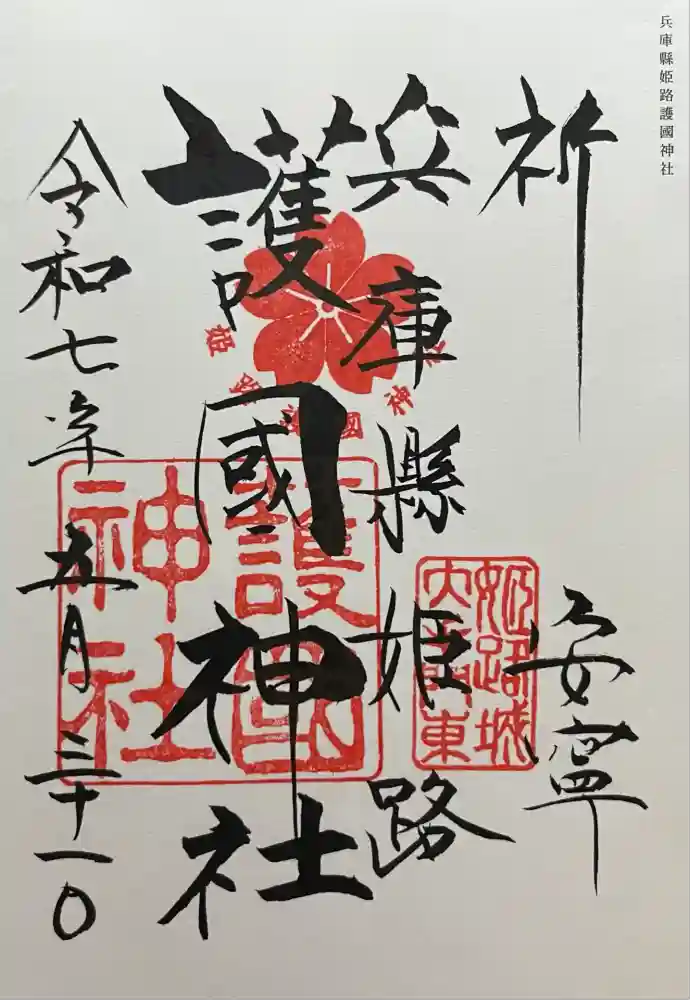 兵庫縣姫路護國神社
祈 安寧
兵庫縣姫路
護國神社
令和七年五月三十一日
姫路護國神社
姫路城
護國
神社